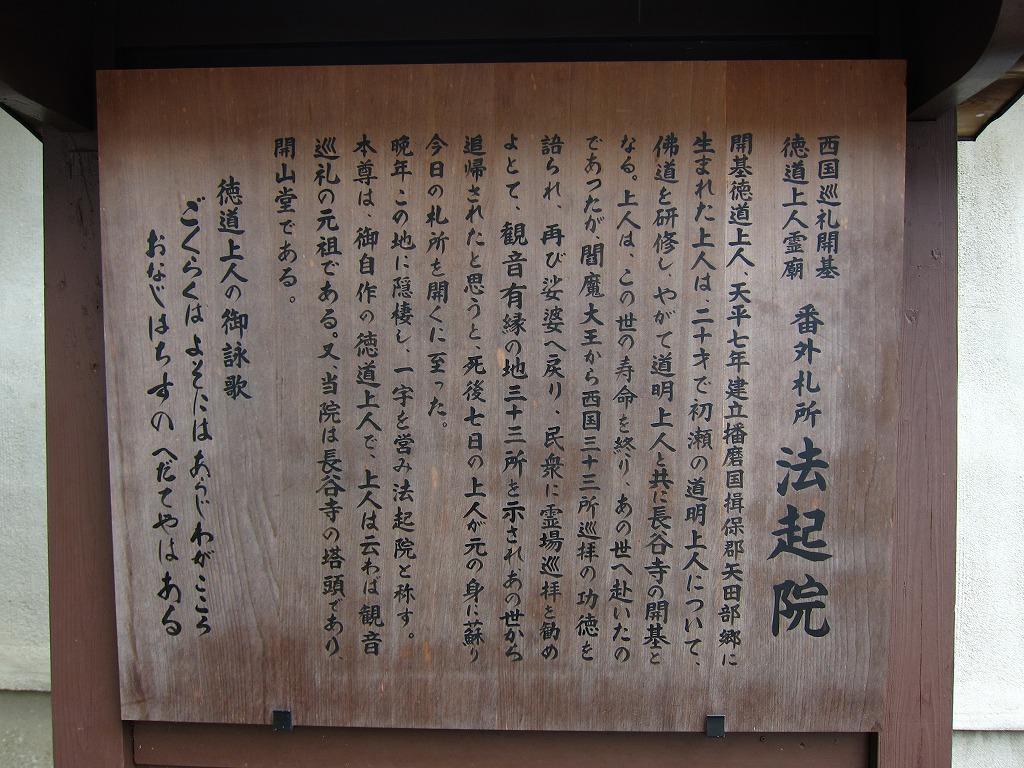 西国巡礼開基
徳道上人霊廟
番外札所 法起院
開基徳道上人、天平七年建立播磨国揖保郡矢田部郷に
生まれた上人は、二十才で初瀬の道明上人について、
佛道を研修し、やがて道明上人と共に長谷寺の開基と
なる。上人は、この世の寿命を終り、あの世へ赴いたの
であつたが、閻魔大王から西国三十三所巡拝の功徳を
語られ、再び娑婆へ戻り、民衆に霊場巡拝を勧め
よとて、観音有縁の地三十三所を示されあの世から
追帰されたと思うと、死後七日の上人が元の身に蘇り
今日の札所を開くに至った。
晩年この地に隠棲し、一宇を営み法起院と称す。
本尊は、御自作の徳道上人で、上人は云わば観音
巡礼の元祖である。又、当院は長谷寺の塔頭であり、
開山堂である。
徳道上人の御詠歌
ごくらくはよそにはあらじわがこころ
おなじはちすのへだてやはある